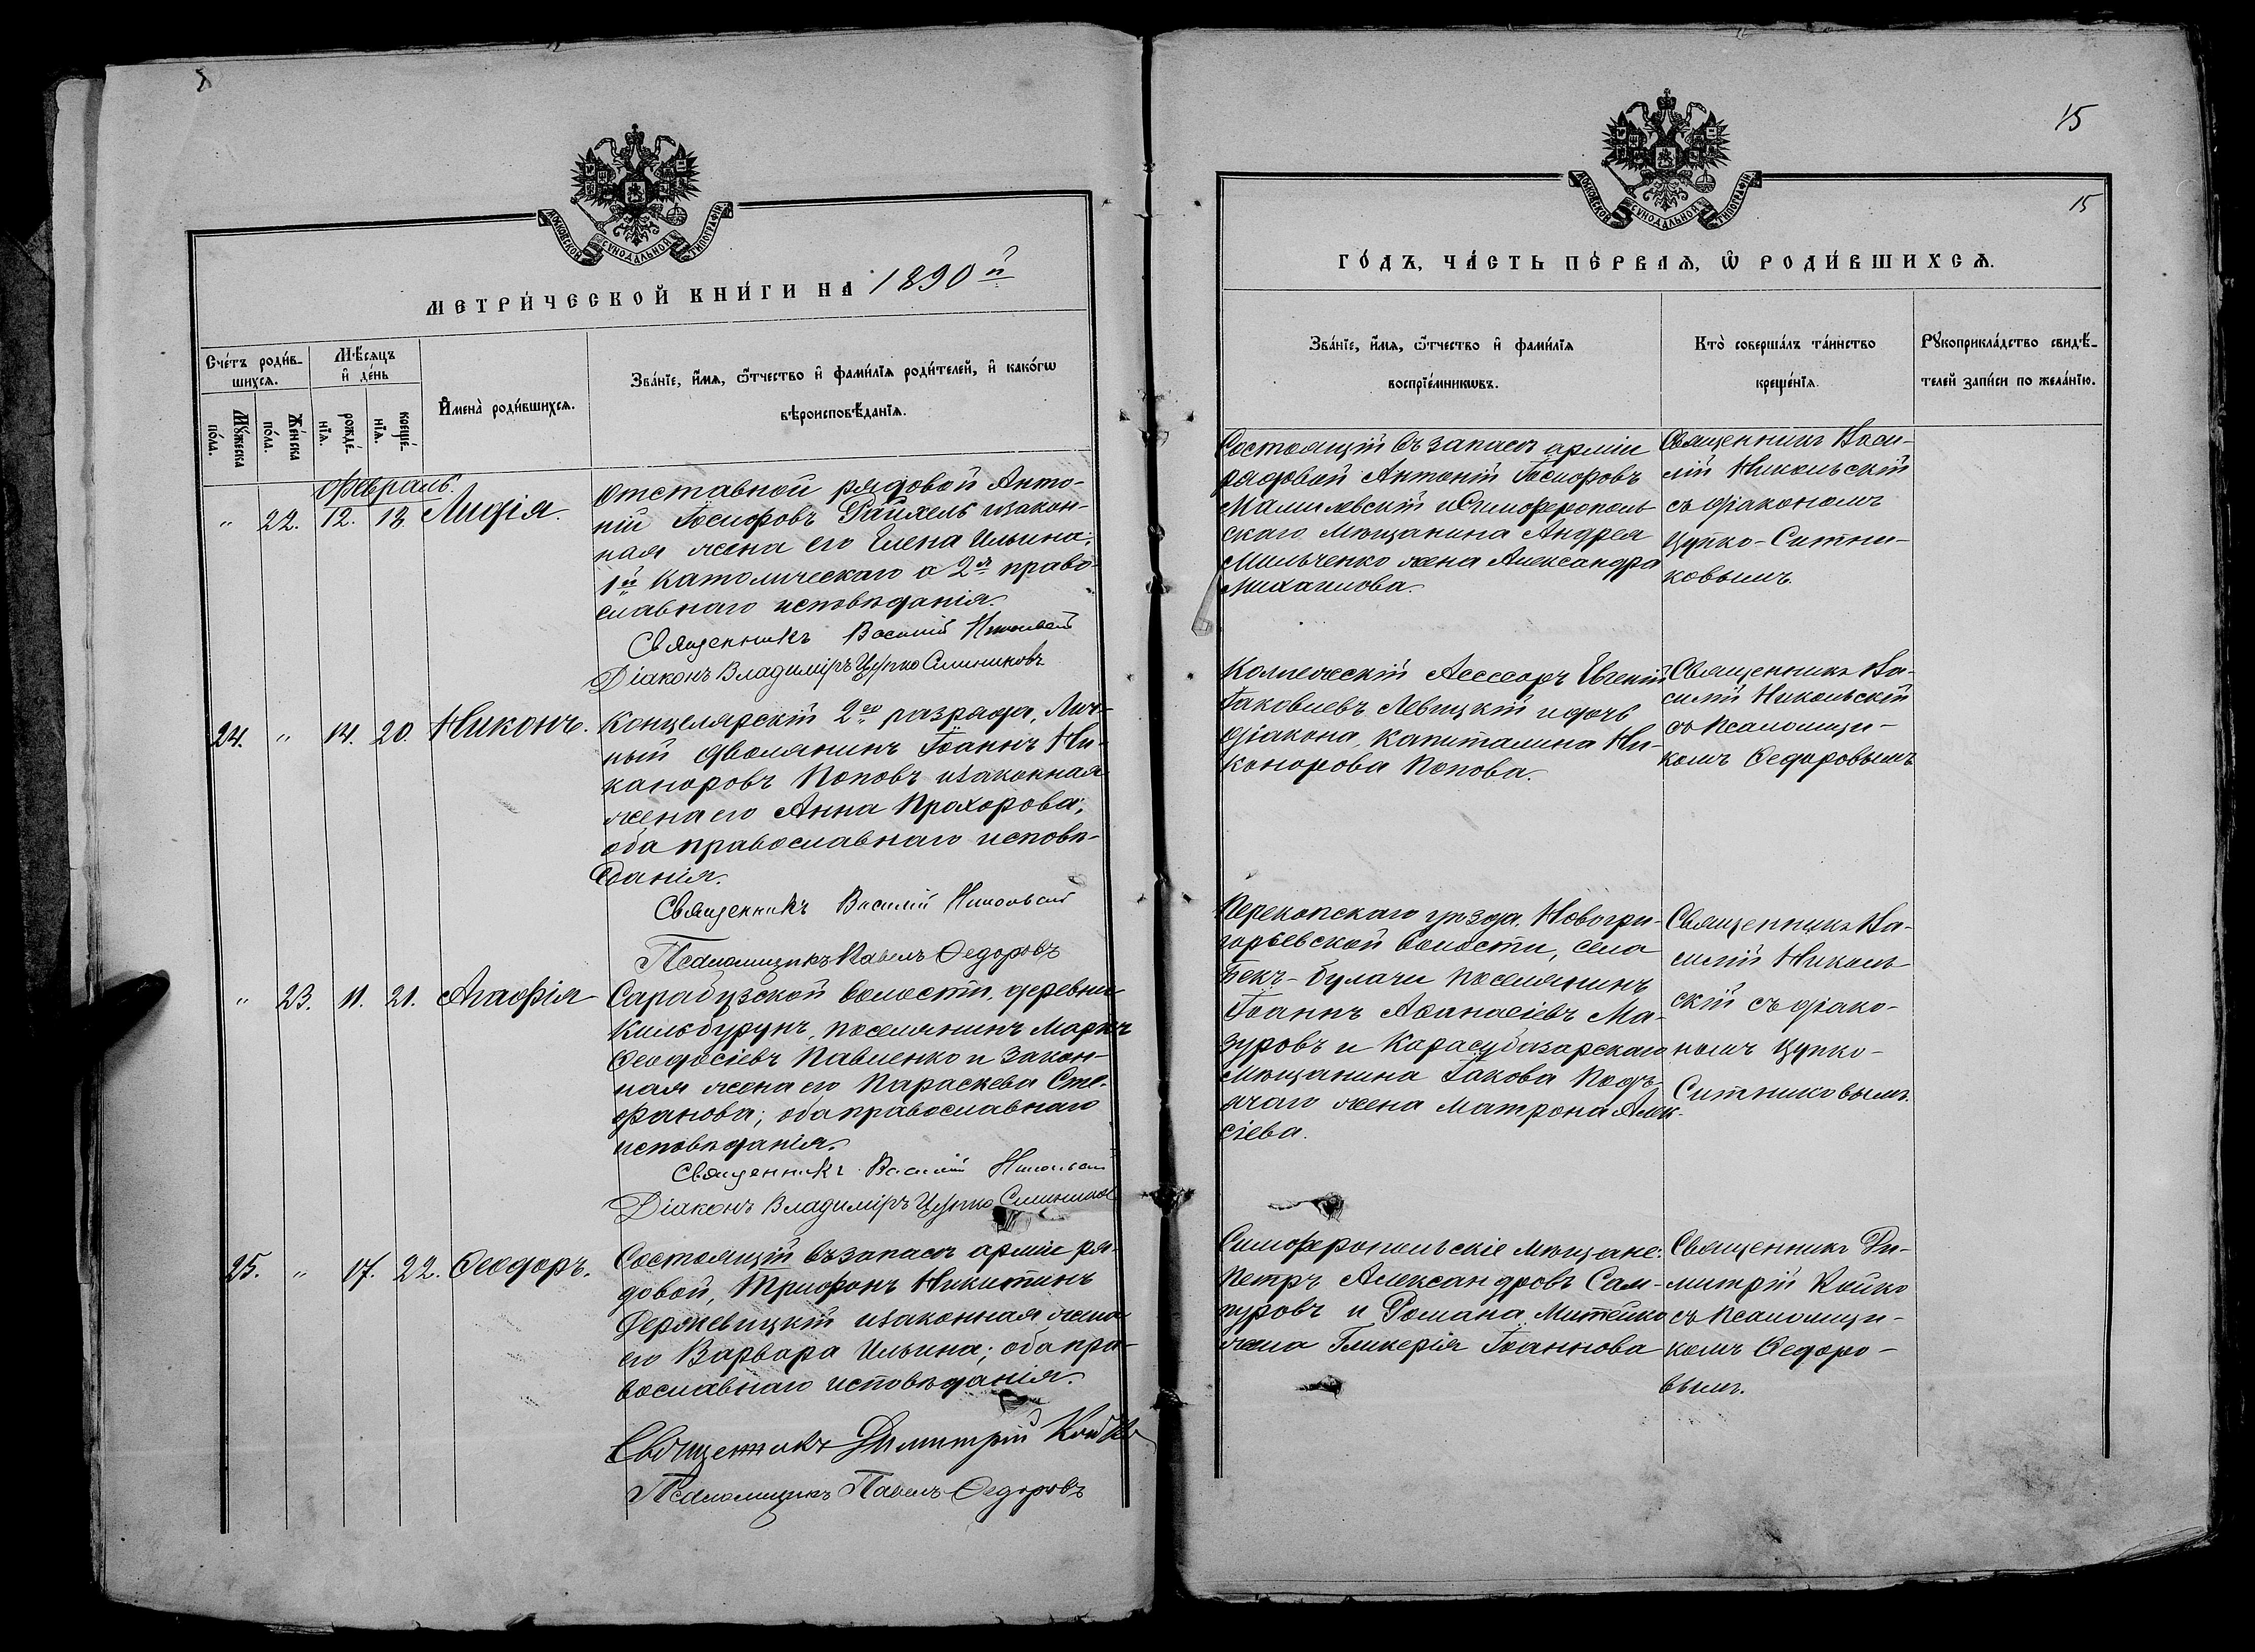 МОСКОВСКОЙ СУНОДАЛЬНОЙ ТИПОГРАФІИ
МЕТРИ́ЧЕСКОЙ КНИ́ГИ НА 1890 й
Сче́тъ роди́в-
шихсѧ.
Мꙋ́жеска
по́ла.
Же́нска
по́ла.
Мѣ́сѧцъ
и҆ де́нь
рожде́-
нїѧ.
креще́-
нїѧ.
И҆мена̀ роди́вшихсѧ.
Зва́нїе, и҆́мѧ, ѻ҆́тчество и҆ фами́лїѧ роди́телей, и҆ како́гѡ
вѣроисповѣ́данїѧ.
Февраль.
" 22. 12. 18. Лидія.
Отставной рядовой Анто-
ній Іосифовъ Райхель изакон-
ная жена его Елена Ильина;
1й Католическаго а 2я право-
славнаго исповѣданія.
Священникъ Василій Никольскій
Діаконъ Владиміръ Цупко Ситниковъ
24. " 14. 20. Никонъ.
Концелярскій 2го разряда, Лич-
ный дволянинъ Іоаннъ Ни-
каноровъ Поповъ изаконная
жена его Анна Прохорова;
оба православнаго исповѣ-
данія.
Священникъ Василій Никольскій
Псаломщикъ Павелъ Федоровъ
" 23. 11. 21. Агафія
Сарабузской волости, деревни
Кильбурунъ, поселянинъ Маркъ
Феодосіевъ Павленко и закон-
ная жена его Параскева Сте-
фанова; оба православнаго
исповѣданія.
Священникъ Василій Никольскій
Діаконъ Владиміръ Цупко Ситниковъ
25. " 17. 22. Ѳеодоръ.
Состоящій въ запасѣ арміи ря-
довой, Трифонъ Никитинъ
изаконная жена
его Варвара Ильина; оба пра-
вославнаго исповѣданія.
Священникъ Димитрій Койко
Псаломщикъ Павелъ Федоровъ
15
15
МОСКОВСКОЙ СУНОДАЛЬНОЙ ТИПОГРАФІИ
ГО́ДЪ, ЧА́СТЬ ПЕ́РВАѦ, Ѽ РОДИ́ВШИХСѦ.
Зва́нїе, и҆́мѧ, ѻ҆́тчество и҆ фами́лїѧ
воспрїе́мникѡвъ.
Кто̀ соверша́лъ та́инство
креще́нїѧ.
Рꙋкоприкла́дство свидѣ́-
телей за́писи по жела́нїю.
Состоящій въ запасѣ арміи
рядовой Антоній Іосифовъ
Малилевскій и Симферополь
скаго Мѣщанина Андрея
Мильченко жена Александра
Михаилова.
Священникъ Васи-
лій Никольскій
съ діакономъ
Цупко-Ситни-
ковымъ.
Коллежскій Ассесоръ Евгеній
Іаковлевъ Левицкій и дочь
діакона, Капиталина Ни-
конорова Попова.
Священникъ Ва-
силій Никольскій
съ Псаломщи-
комъ Федоровымъ
Перекопскаго уѣзда, Новогри-
горьевской волости, села
Бекъ-Булачи поселянинъ
Іоаннъ Аѳанасіевъ Ма-
зуровъ и Карасубазарскаго
мѣщанина Іакова Подъ-
ячаго жена Матрона Алек-
сіева.
Священникъ Ва-
силій Николь-
скій съ діако-
номъ Цупко-
Ситниковымъ.
Симферопольскіе мѣщане:
Петръ Александровъ Сам-
пуровъ и Романа Митейко
жена Гликерія Іоаннова
Священникъ Ди-
митрій Койко
съ Псаломщи-
комъ Федоро-
вымъ.